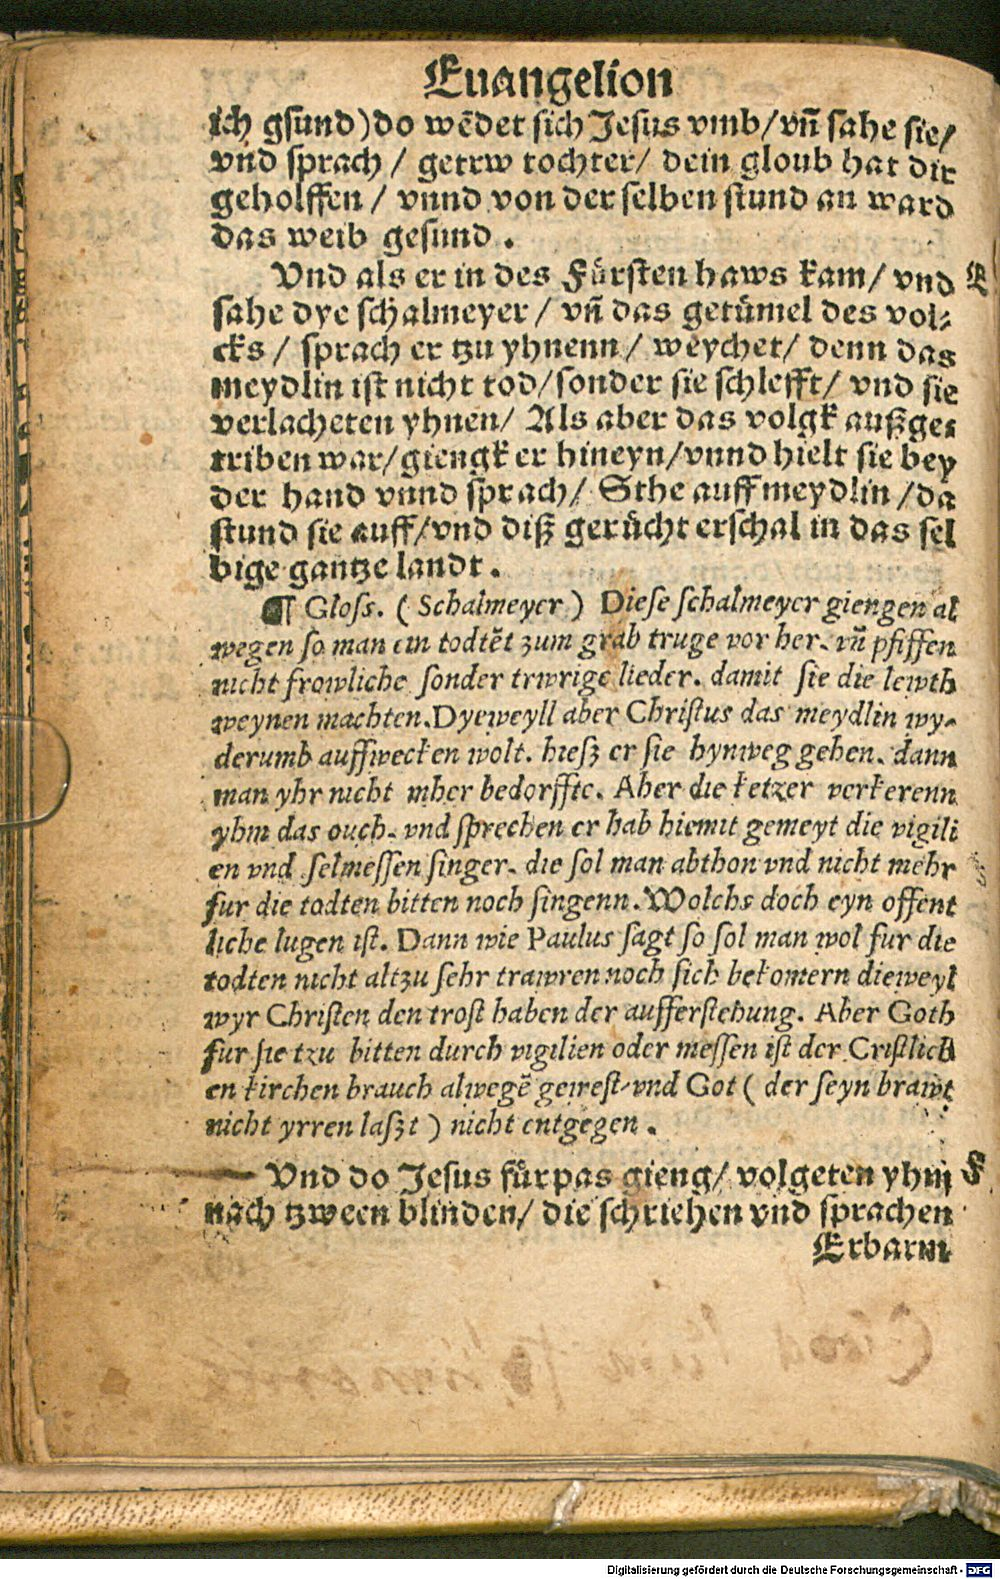 Euangelion
ich gsund) do wēdet sich Jesus vmb/ vñ sahe sie/
vnd sprach / getrw tochter/ dein gloub hat dir
geholffen / vnnd von der selben stund an ward
das weib gesund .
Vnd als er in des Fürsten haws kam/ vnd E
sahe dye schalmeyer / vñ das getümel des vol⸗
cks / sprach er tzu yhnenn / weychet/ denn das
meydlin ist nicht tod/ sonder sie schlefft/ vnd sie
verlacheten yhnen/ Als aber das volgk außge⸗
triben war/ giengk er hineyn/ vnnd hielt sie bey
der hand vnnd sprach/ Sthe auff meydlin / da
stund sie auff/ vnd diß gerücht erschal in das sel
bige gantze landt .
¶ Gloss. ( Schalmeyer ) Diese schalmeyer giengen al
wegen so man ein todtēt zum grab truge vor her. vñ pfiffen
nicht frowliche sonder trwrige lieder. damit sie die lewth
weynen machten. Dyeweyll aber Christus das meydlin wy-
derumb auffwecken wolt. hiesz er sie hynweg gehen. dann
man yhr nicht mher bedorffte. Aber die ketzer verkerenn
yhm das ouch. vnd sprechen er hab hiemit gemeyt die vigili
en vnd selmessen singer. die sol man abthon vnd nicht mehr
fur die todten bitten noch singenn. Wolchs doch eyn offent
liche lugen ist. Dann wie Paulus sagt so sol man wol fur die
todten nicht altzu sehr trawren noch sich bekomern dieweyl
wyr Christen den trost haben der aufferstehung. Aber Goth
fur sie tzu bitten durch vigilien oder messen ist der Cristlich
en kirchen brauch alwegē gewest. vnd Got ( der seyn brawt
nicht yrren laszt ) nicht entgegen .
Vnd do Jesus fürpas gieng/ volgeten yhm F
nach tzween blinden/ die schriehen vnd sprachen
Erbarm
Digitalisierung gefördert durch die Deutsche Forschungsgemeinschaft - DFG